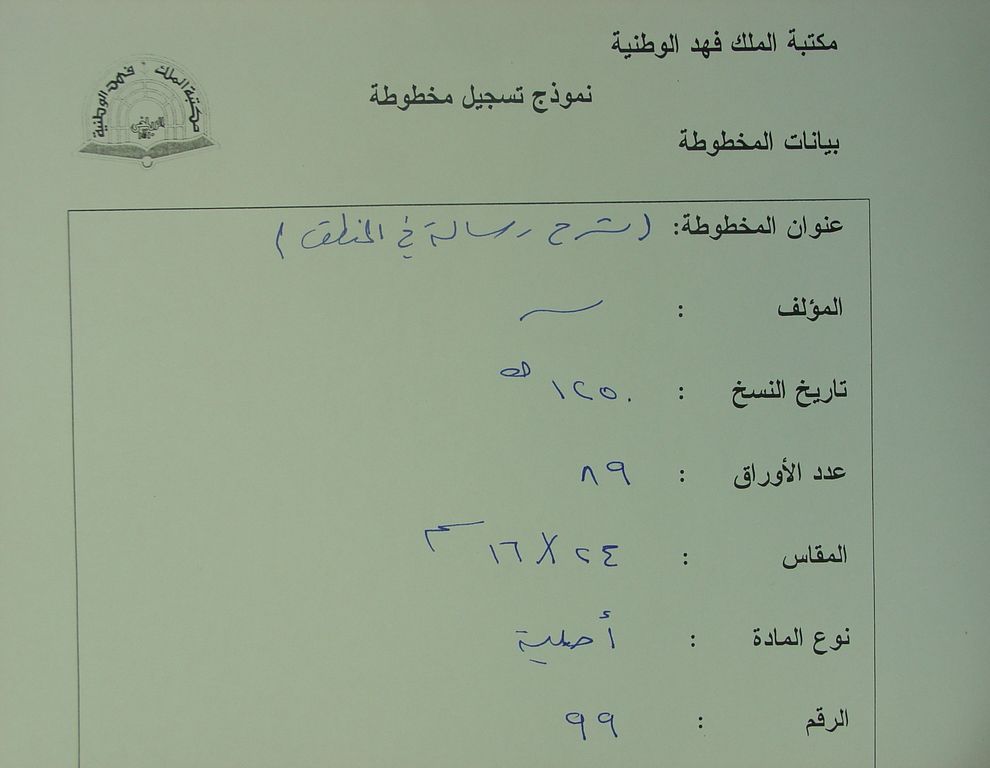 مكتبة الملك فهد الوطنية
مكتبة الملك فهد الوطنية
الرياض
نموذج تسجيل مخطوطة
بيانات المخطوطة
عنوان المخطوطة: (شرح رسالة في المنطق)
المؤلف :
تاريخ النسخ : ١٢٥٠ هـ
عدد الأوراق : ٨٩
المقاس : ٢٤ X ١٦ سم
نوع المادة : أصلية
الرقم : ٩٩